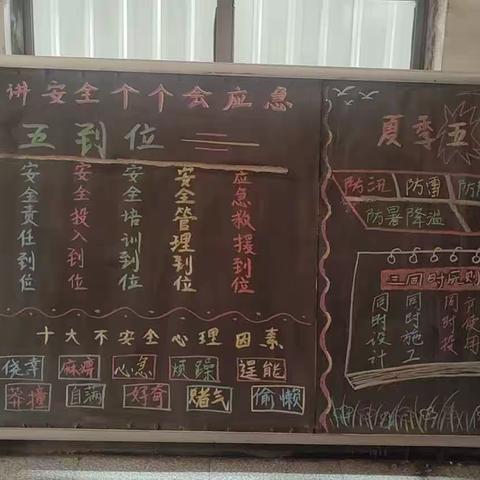 讲安全个个会应急
五到位
安全责任到位
安全投入到位
安全培训到位
安全管理到位
应急救援到位
十大不安全心理因素
侥幸 麻痹 心急 烦躁 逞能
莽撞 自满 好奇 赌气 偷懒
夏季五
防汛 防雷 防
防暑降温
三同时原则
同时设计
同时施工
同时投
使用